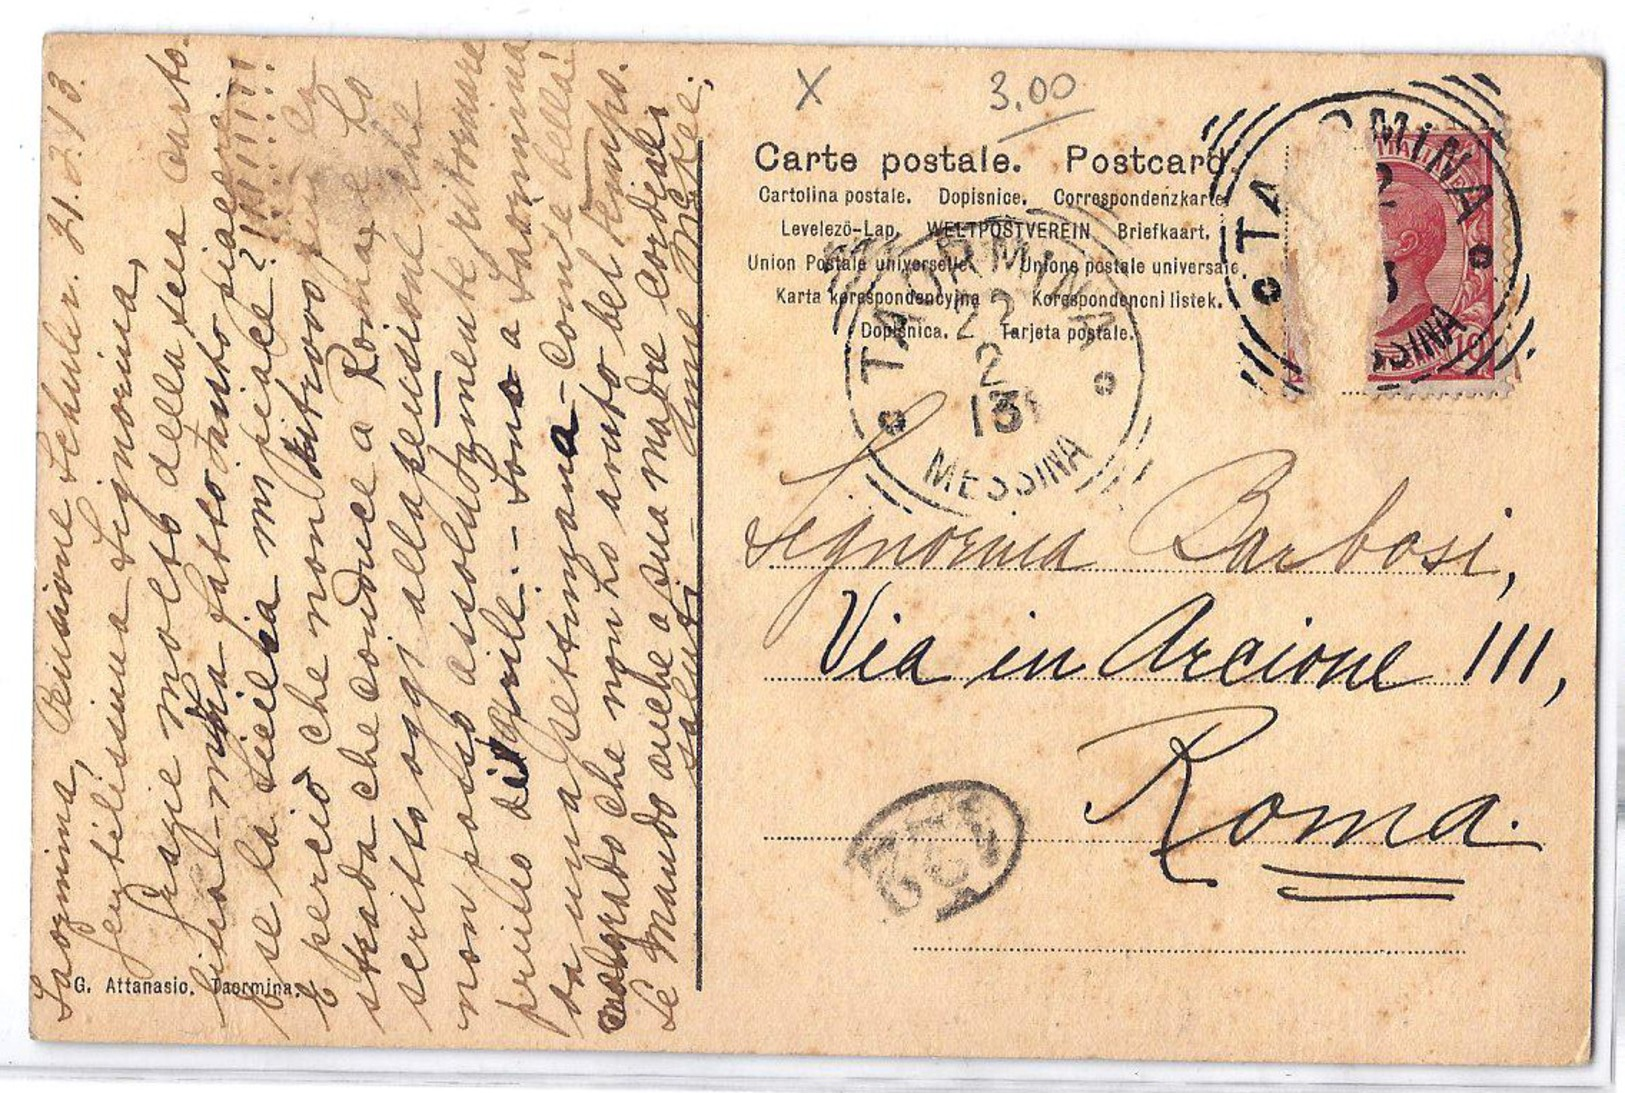 Taormina, Pensione Schuler. 21.2.13.
gentilissima Signorina,
Grazie molto della sua carto-
lina - mi ha fatto tanto piacere!
E se la Sicilia mi piace?!!!!!!!
E perciò che non ritrovo più la
strada che conduce a Roma, e ho
scritto oggi alla pensione che
non posso assolutamente ritornare
primo di Aprile. - Sono a Taormina
da una settimana - com'è bella!
malgrado che non ho avuto bel tempo.
Le mando anche a sua madre cordiali
saluti
G. Attanasio. Taormina.
X
3.00
Carte postale. Postcard.
Cartolina postale. Dopisnice. Correspondenzkarte
Levelezö-Lap. WELTPOSTVEREIN Briefkaart.
Union Postale universelle. Unione postale universale
Karta korespondencyjna Korespondencni listek.
Dopisnica. Tarjeta postale.
TAORMINA
22
2
13
MESSINA
TAORMINA
MESSINA
10
Signorina Barbosi,
Via in Arcione 111,
Roma.